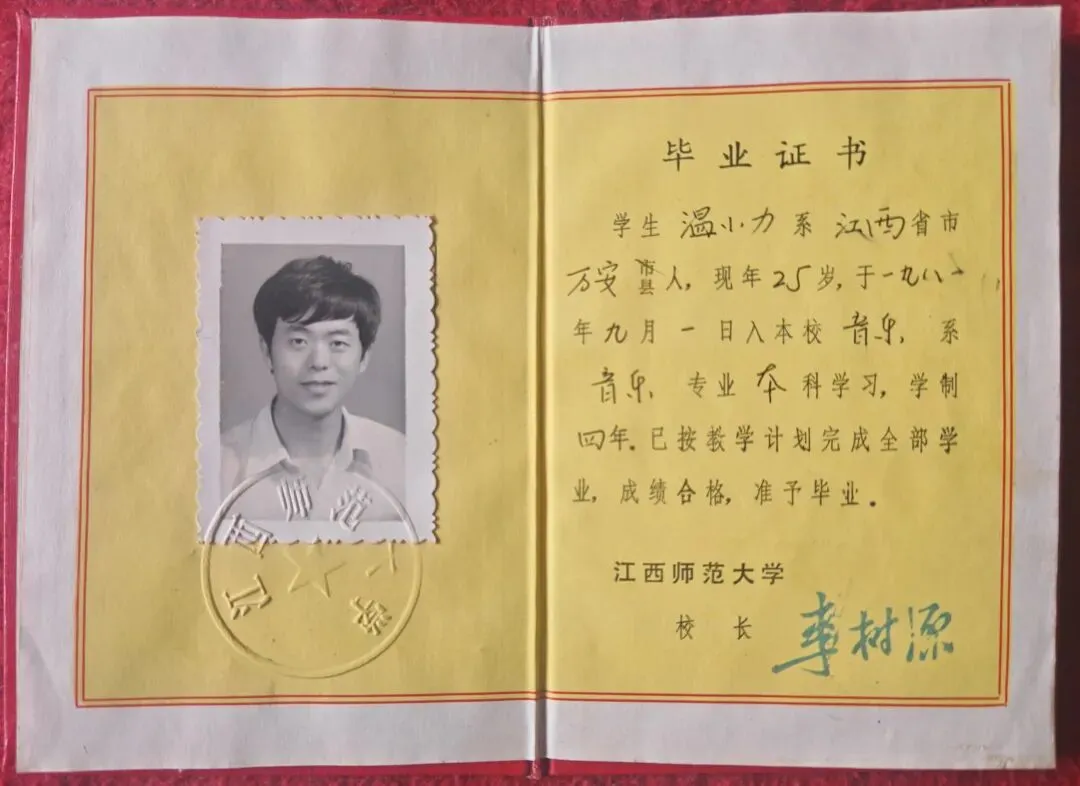 江西师范大学
毕业证书
学生 温小力 系 江西 省市
万安 市县 人，现年 25 岁，于一九八一
年 九 月 一 日入本校 音乐 系
音乐 专业 本 科学习，学制
四年。已按教学计划完成全部学
业，成绩合格，准予毕业。
江西师范大学
校 长 李树源